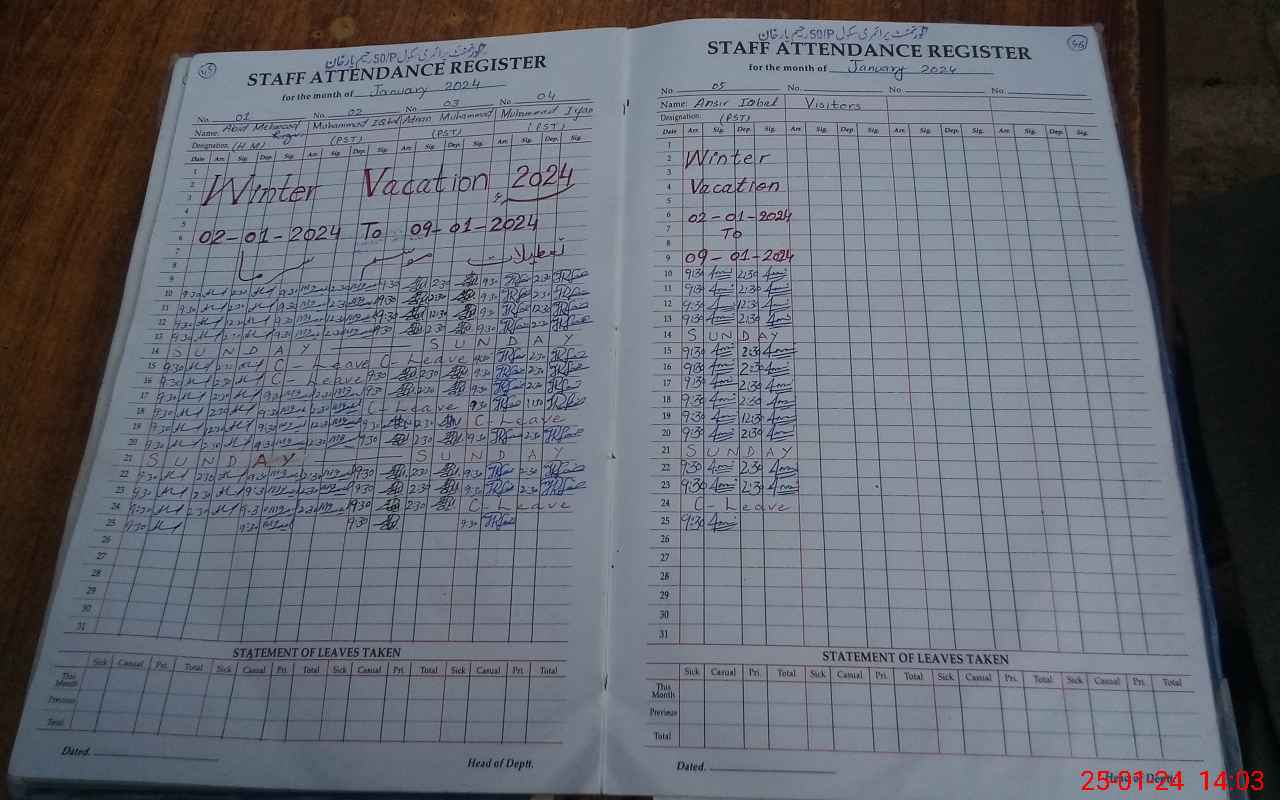 45
گورنمنٹ پرائمری سکول 50/P رحیم یار خان
STAFF ATTENDANCE REGISTER
for the month of January 2024
No. 01 No. 02 No. 03 No. 04
Name: Abid Mehmood Muhammad Iqbal Adnan Muhammad Muhammad Irfan
Designation. (H.M) (PST) (PST) (PST)
Date Arr. Sig. Dep. Sig. Arr. Sig. Dep. Sig. Arr. Sig. Dep. Sig. Arr. Sig. Dep. Sig.
1
2 Winter Vacation 2024
3
4
5
6 02-01-2024 To 09-01-2024
7
8 تعطیلات
9
10 9:30 2:30 9:30 2:30 9:30 2:30 9:30 2:30
11 9:30 2:30 9:30 2:30 9:30 2:30 9:30 2:30
12 9:30 12:30 9:30 12:30 9:30 12:30 9:30 12:30
13 9:30 2:30 9:30 2:30 9:30 2:30 9:30 2:30
14 SUNDAY SUNDAY
15 9:30 2:30 C-Leave C-Leave 9:30 2:30
16 9:30 2:30 C-Leave 9:30 2:30 9:30 2:30
17 9:30 2:30 9:30 2:30 9:30 2:30 9:30 2:30
18 9:30 2:30 9:30 2:30 C-Leave 9:30
19 9:30 12:30 9:30 12:30 9:30 C-Leave
20 9:30 2:30 9:30 2:30 9:30 2:30 9:30 2:30
21 SUNDAY SUNDAY
22 9:30 2:30 9:30 2:30 9:30 2:30 9:30 2:30
23 9:30 2:30 9:30 2:30 9:30 2:30 9:30 2:30
24 9:30 2:30 9:30 2:30 9:30 2:30 C-Leave
25 9:30 9:30 9:30 9:30
26
27
28
29
30
31
STATEMENT OF LEAVES TAKEN
Sick Casual Pri. Total Sick Casual Pri. Total Sick Casual Pri. Total Sick Casual Pri. Total
This Month
Previous
Total
Dated.
Head of Deptt.
46
گورنمنٹ پرائمری سکول 50/P رحیم یار خان
STAFF ATTENDANCE REGISTER
for the month of January 2024
No. 05 No. No. No.
Name: Ansir Iqbal Visitors
Designation. (PST)
Date Arr. Sig. Dep. Sig. Arr. Sig. Dep. Sig. Arr. Sig. Dep. Sig. Arr. Sig. Dep. Sig.
1
2 Winter
3
4 Vacation
5
6 02-01-2024
7 To
8
9 09-01-2024
10 9:30 2:30
11 9:30 2:30
12 9:30 12:30
13 9:30 2:30
14 SUNDAY
15 9:30 2:30
16 9:30 2:30
17 9:30 2:30
18 9:30 2:30
19 9:30 12:30
20 9:30 2:30
21 SUNDAY
22 9:30 2:30
23 9:30 2:30
24 C-Leave
25 9:30
26
27
28
29
30
31
STATEMENT OF LEAVES TAKEN
Sick Casual Pri. Total Sick Casual Pri. Total Sick Casual Pri. Total Sick Casual Pri. Total
This Month
Previous
Total
Dated.
Head of Deptt.
25-01-24 14:03